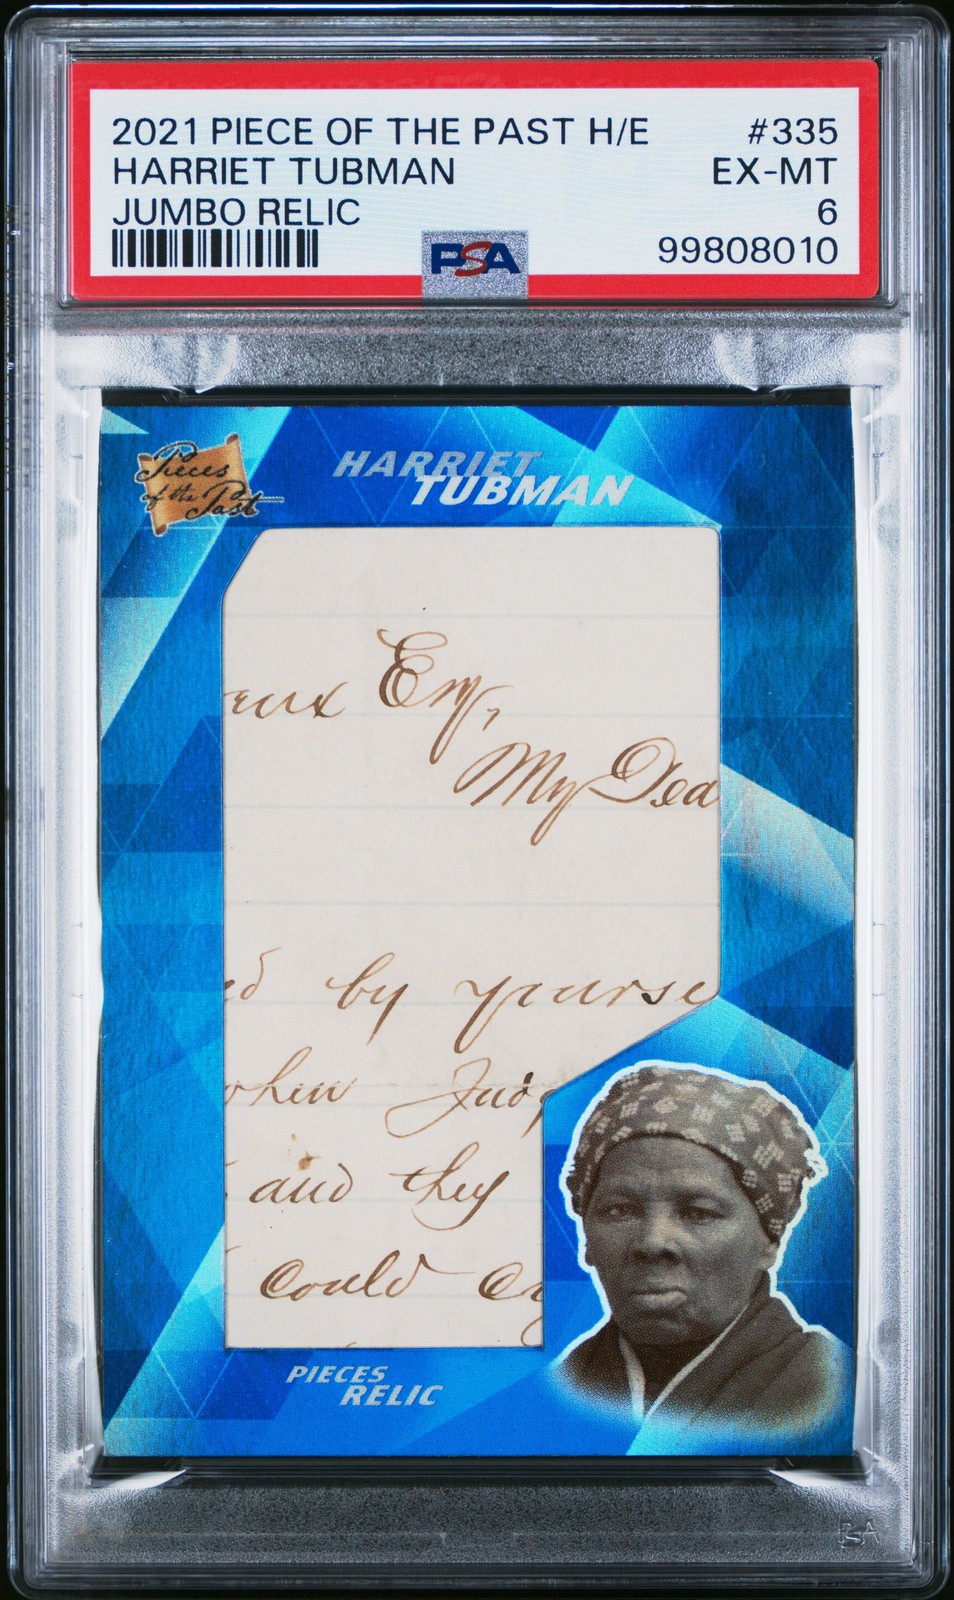 2021 PIECE OF THE PAST H/E #335
HARRIET TUBMAN EX-MT
JUMBO RELIC 6
99808010
PSA
Pieces
of the
Past
HARRIET
TUBMAN
Esq,
My Dea
by yourse
when Judg
and they
could
PIECES
RELIC
PSA